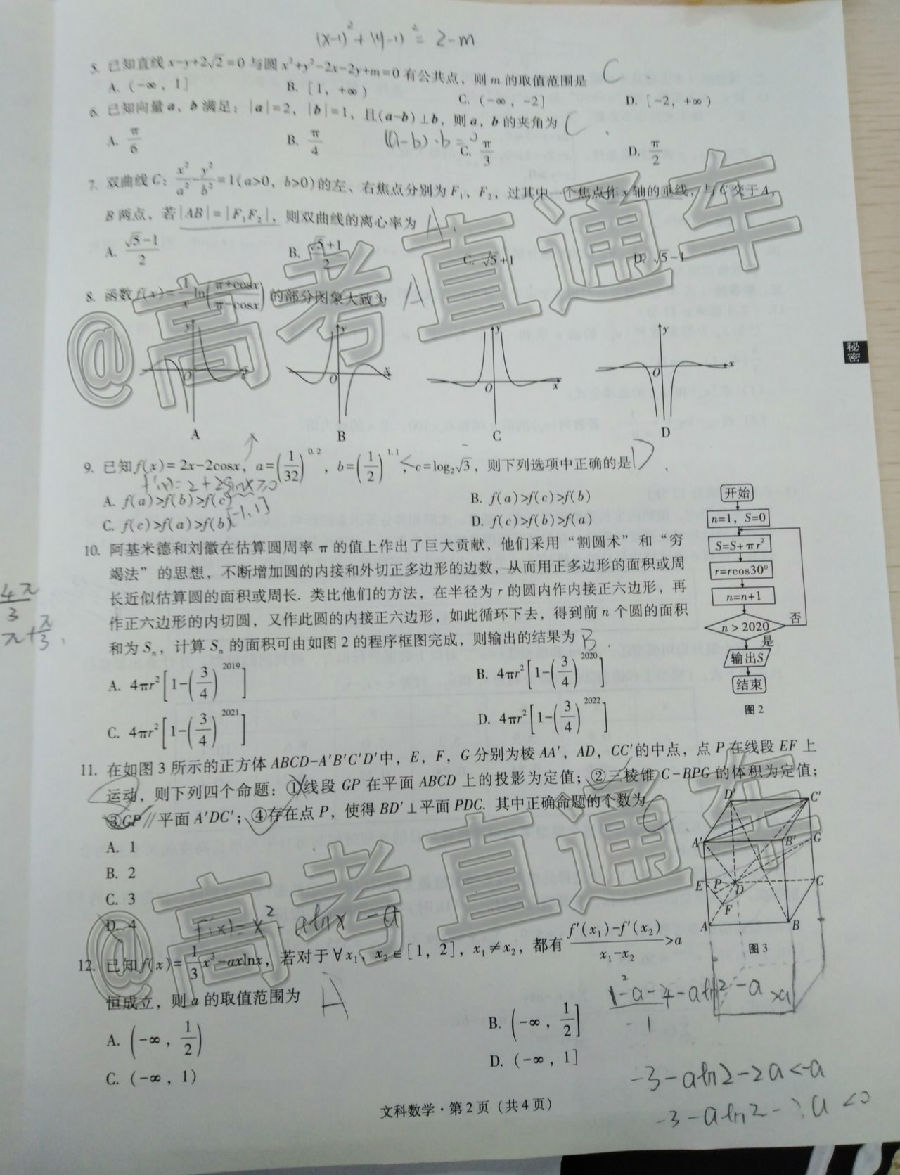 (x-1)²+(y-1)²=2-m
5. 已知直线 x-y+2√2=0 与圆 x²+y²-2x-2y+m=0 有公共点，则 m 的取值范围是 C
A. (-∞，1]  B. [1，+∞)  C. (-∞，-2]  D. [-2，+∞)
6. 已知向量 a，b 满足：|a|=2，|b|=1，且(a-b)⊥b，则 a，b 的夹角为 C
(a-b)·b=0
A. π/6  B. π/4  C. π/3  D. π/2
7. 双曲线 C：x²/a²-y²/b²=1(a>0，b>0)的左、右焦点分别为 F₁、F₂，过其中一个焦点作 x 轴的垂线，与 C 交于 A，
B 两点，若|AB|=|F₁F₂|，则双曲线的离心率为 A
A. (√5-1)/2  B. (√5+1)/2  C. √5+1  D. √5-1
8. 函数 f(x)=1/x ln((π+cosx)/(π-cosx)) 的部分图象大致为 A
y x O
y x O
y x O
y x O
A B C D
9. 已知 f(x)=2x-2cosx，a=(1/32)^0.2，b=(1/2)^1.1，<c=log₂√3，则下列选项中正确的是 D
f'(x)=2+2sinx≥0
[-1,1]
A. f(a)>f(b)>f(c)  B. f(a)>f(c)>f(b)
C. f(c)>f(a)>f(b)  D. f(c)>f(b)>f(a)
10. 阿基米德和刘徽在估算圆周率 π 的值上作出了巨大贡献，他们采用“割圆术”和“穷
竭法”的思想，不断增加圆的内接和外切正多边形的边数，从而用正多边形的面积或周
长近似估算圆的面积或周长. 类比他们的方法，在半径为 r 的圆内作内接正六边形，再
作正六边形的内切圆，又作此圆的内接正六边形，如此循环下去，得到前 n 个圆的面积
和为 Sₙ，计算 Sₙ 的面积可由如图 2 的程序框图完成，则输出的结果为 B
A. 4πr²[1-(3/4)^2019]  B. 4πr²[1-(3/4)^2020]
C. 4πr²[1-(3/4)^2021]  D. 4πr²[1-(3/4)^2022]
开始
n=1，S=0
S=S+πr²
r=rcos30°
n=n+1
n>2020
否
是
输出S
结束
图 2
4π/3
π+π/3
11. 在如图 3 所示的正方体 ABCD-A'B'C'D'中，E，F，G 分别为棱 AA'，AD，CC'的中点，点 P 在线段 EF 上
运动，则下列四个命题：①线段 GP 在平面 ABCD 上的投影为定值；②三棱锥 C-BPG 的体积为定值；
③GP∥平面 A'DC'；④存在点 P，使得 BD'⊥平面 PDC. 其中正确命题的个数为
A. 1
B. 2
C. 3
D. 4
D' C'
A' B' G
E P D C
F
A B
图 3
f'(x)=x²-alnx-a
12. 已知 f(x)=1/3 x³-axlnx，若对于∀x₁，x₂∈[1，2]，x₁≠x₂，都有 (f'(x₁)-f'(x₂))/(x₁-x₂)>a
恒成立，则 a 的取值范围为 A
A. (-∞，1/2)  B. (-∞，1/2]
C. (-∞，1)  D. (-∞，1]
-3-aln2-2a<-a
文科数学·第 2 页（共 4 页）
秘密
@高考直通车
@高考直通车